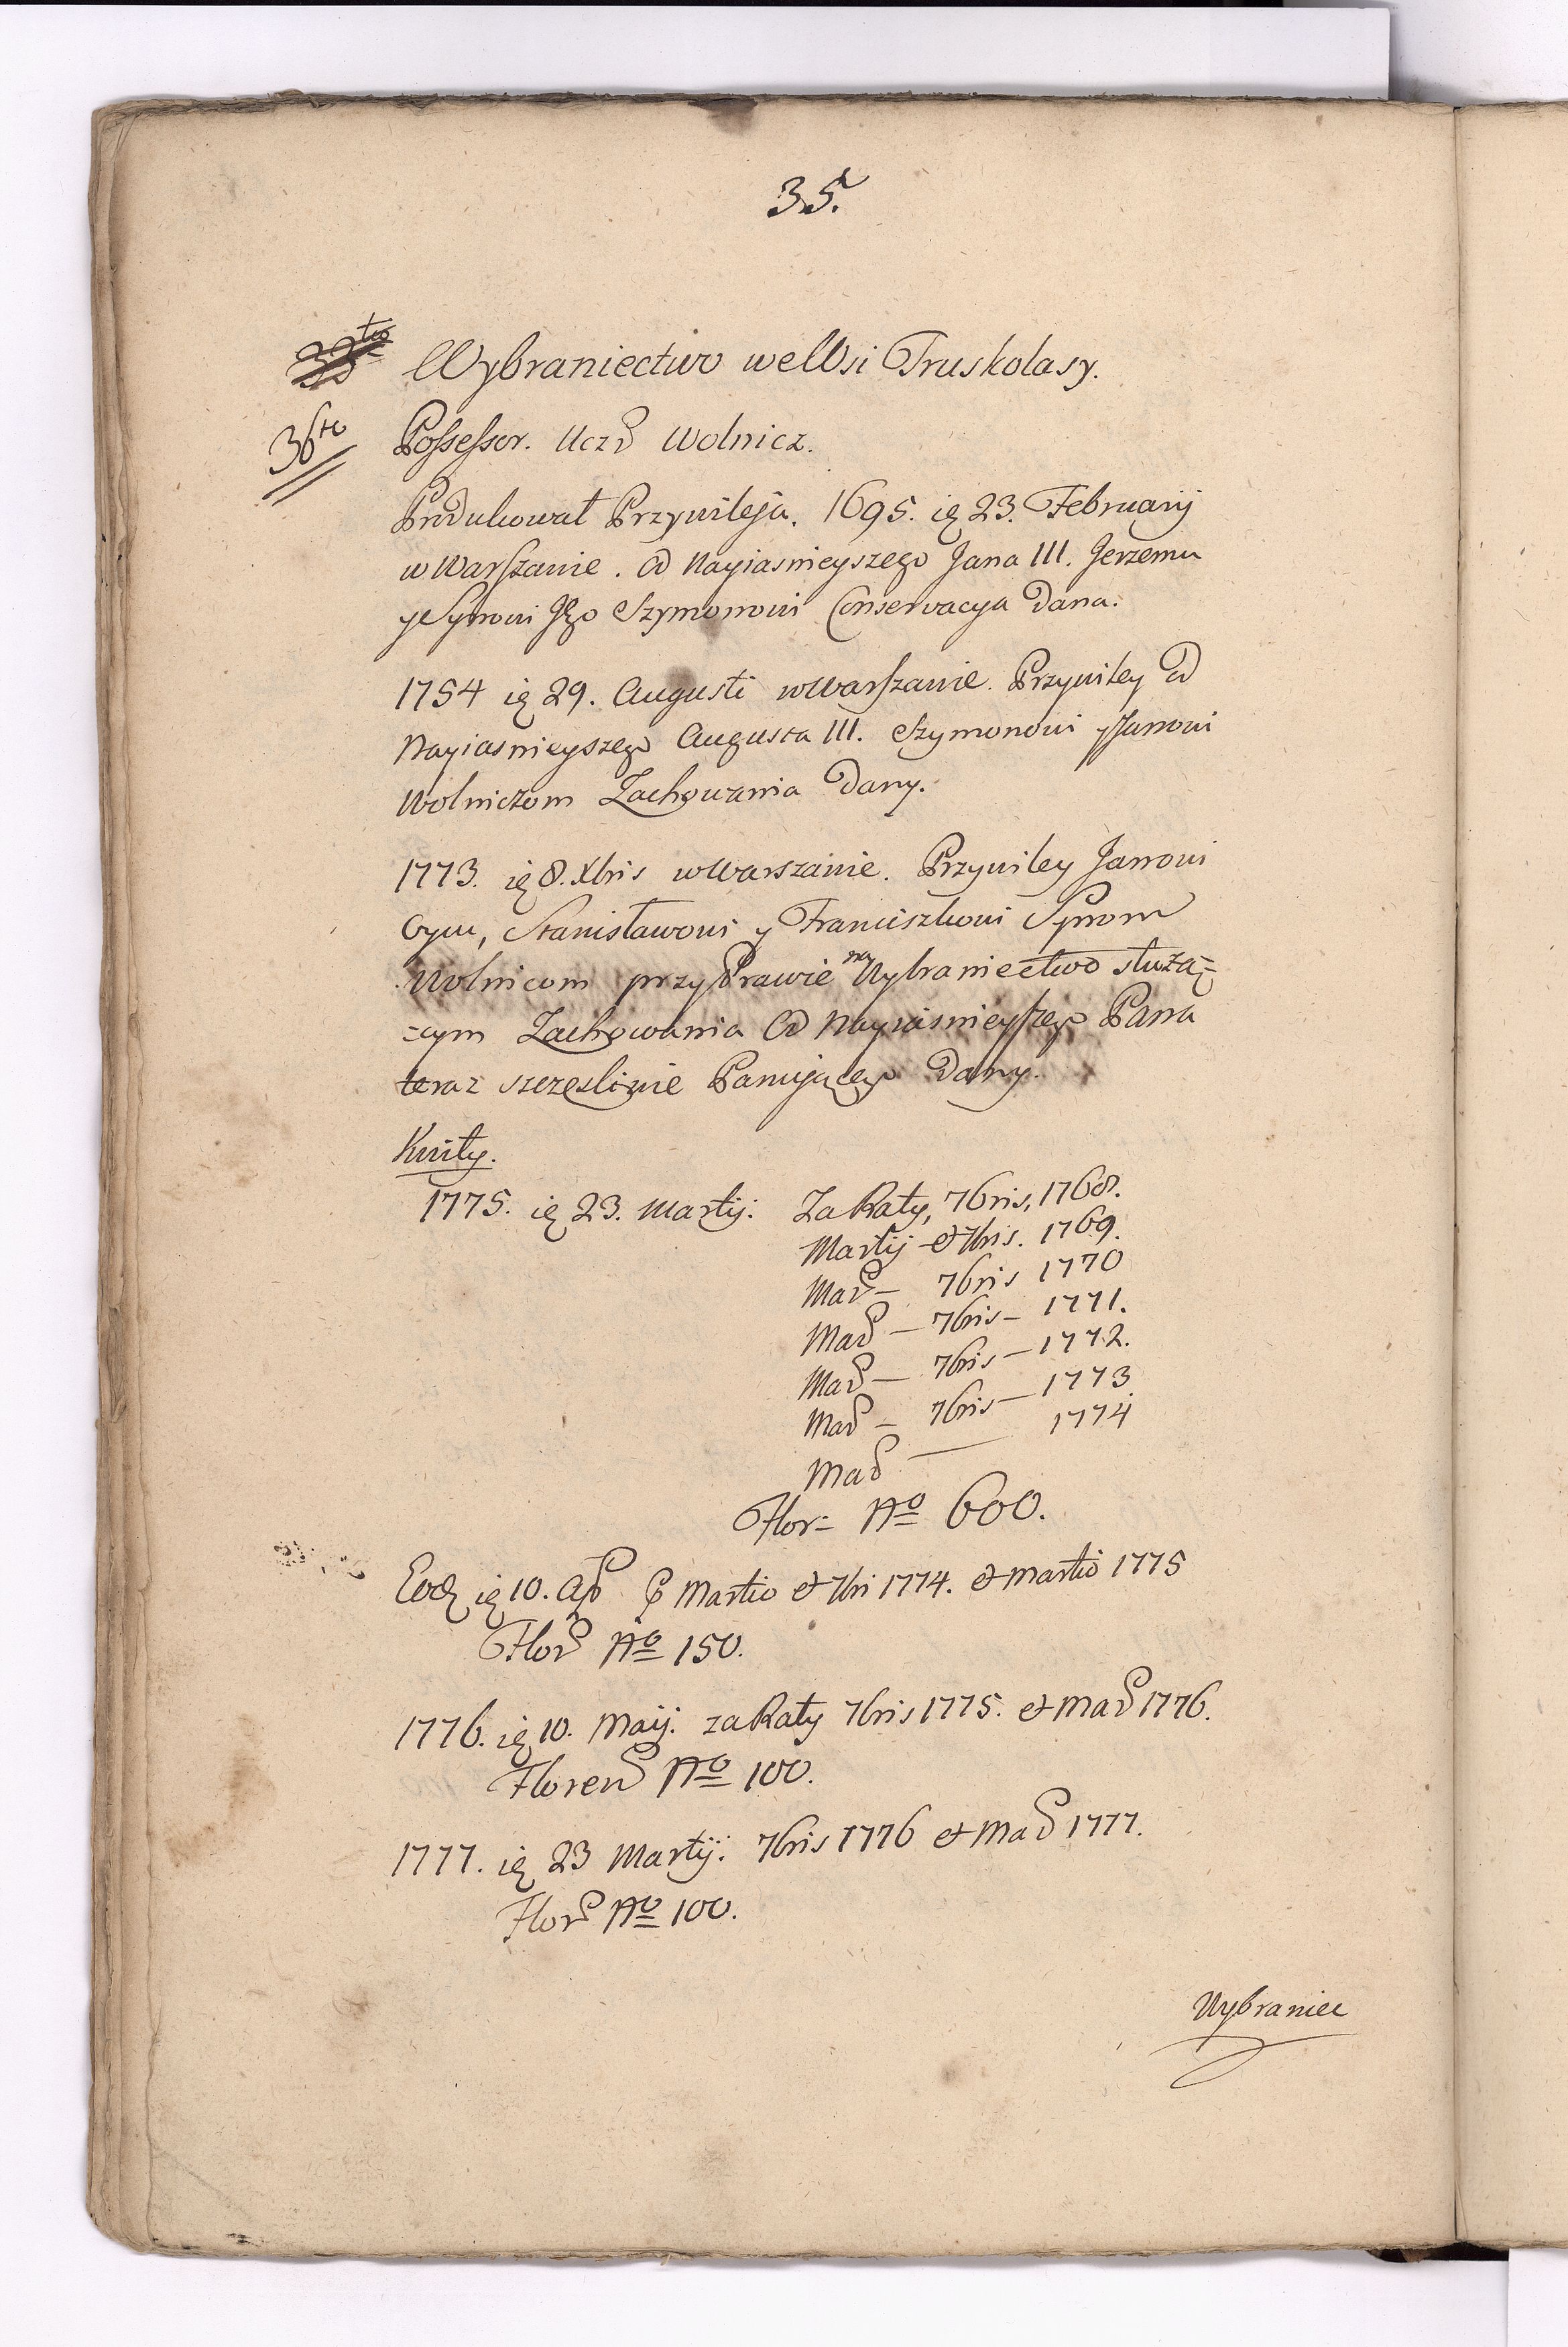 35.
Wybraniectwo we Wsi Truskolasy.
36to
Possessor. Ucz Wolnicz.
Produkował Przywileja. 1695. ię 23. Februarij
w Warszawie. Od Nayiasnieyszego Jana III. Jerzemu
y Synowi Jgo Szymonowi Conserwacya Dana.
1754 ię 29. Augusti w Warszawie. Przywiley Od
Nayiasnieyszego Augusta III. Szymonowi y Janowi
Wolniczom Zachowania Dany.
1773. ię 8. Xbris w Warszawie. Przywiley Janowi
Oycu, Stanisławowi y Franciszkowi Synom
Wolnicom przy Prawie na Wybraniectwo służą=
=cym Zachowania Od Nayiasnieyszego Pana
teraz szczęsliwie Panującego Dany.
Kwity.
1775. ię 23. Martij: Za Raty, 7bris, 1768.
Martij et 7bris. 1769.
Mar — 7bris 1770
Mar — 7bris — 1771.
Mar — 7bris — 1772.
Mar — 7bris — 1773
Mar — 1774
Flor= No 600.
Eod ię 10. Apr P Martio et 7bri 1774. et Martio 1775
Flor No 150.
1776. ię 10. Maij. za Raty 7bris 1775. et Mar 1776.
Floren No 100.
1777. ię 23 Martij: 7bris 1776 et Mar 1777.
Flor No 100.
Wybraniec